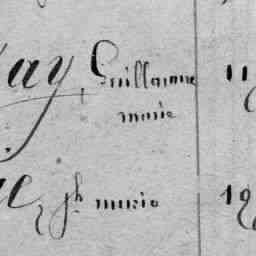 ay, Guillaume 11
marie
e, jh marie 19